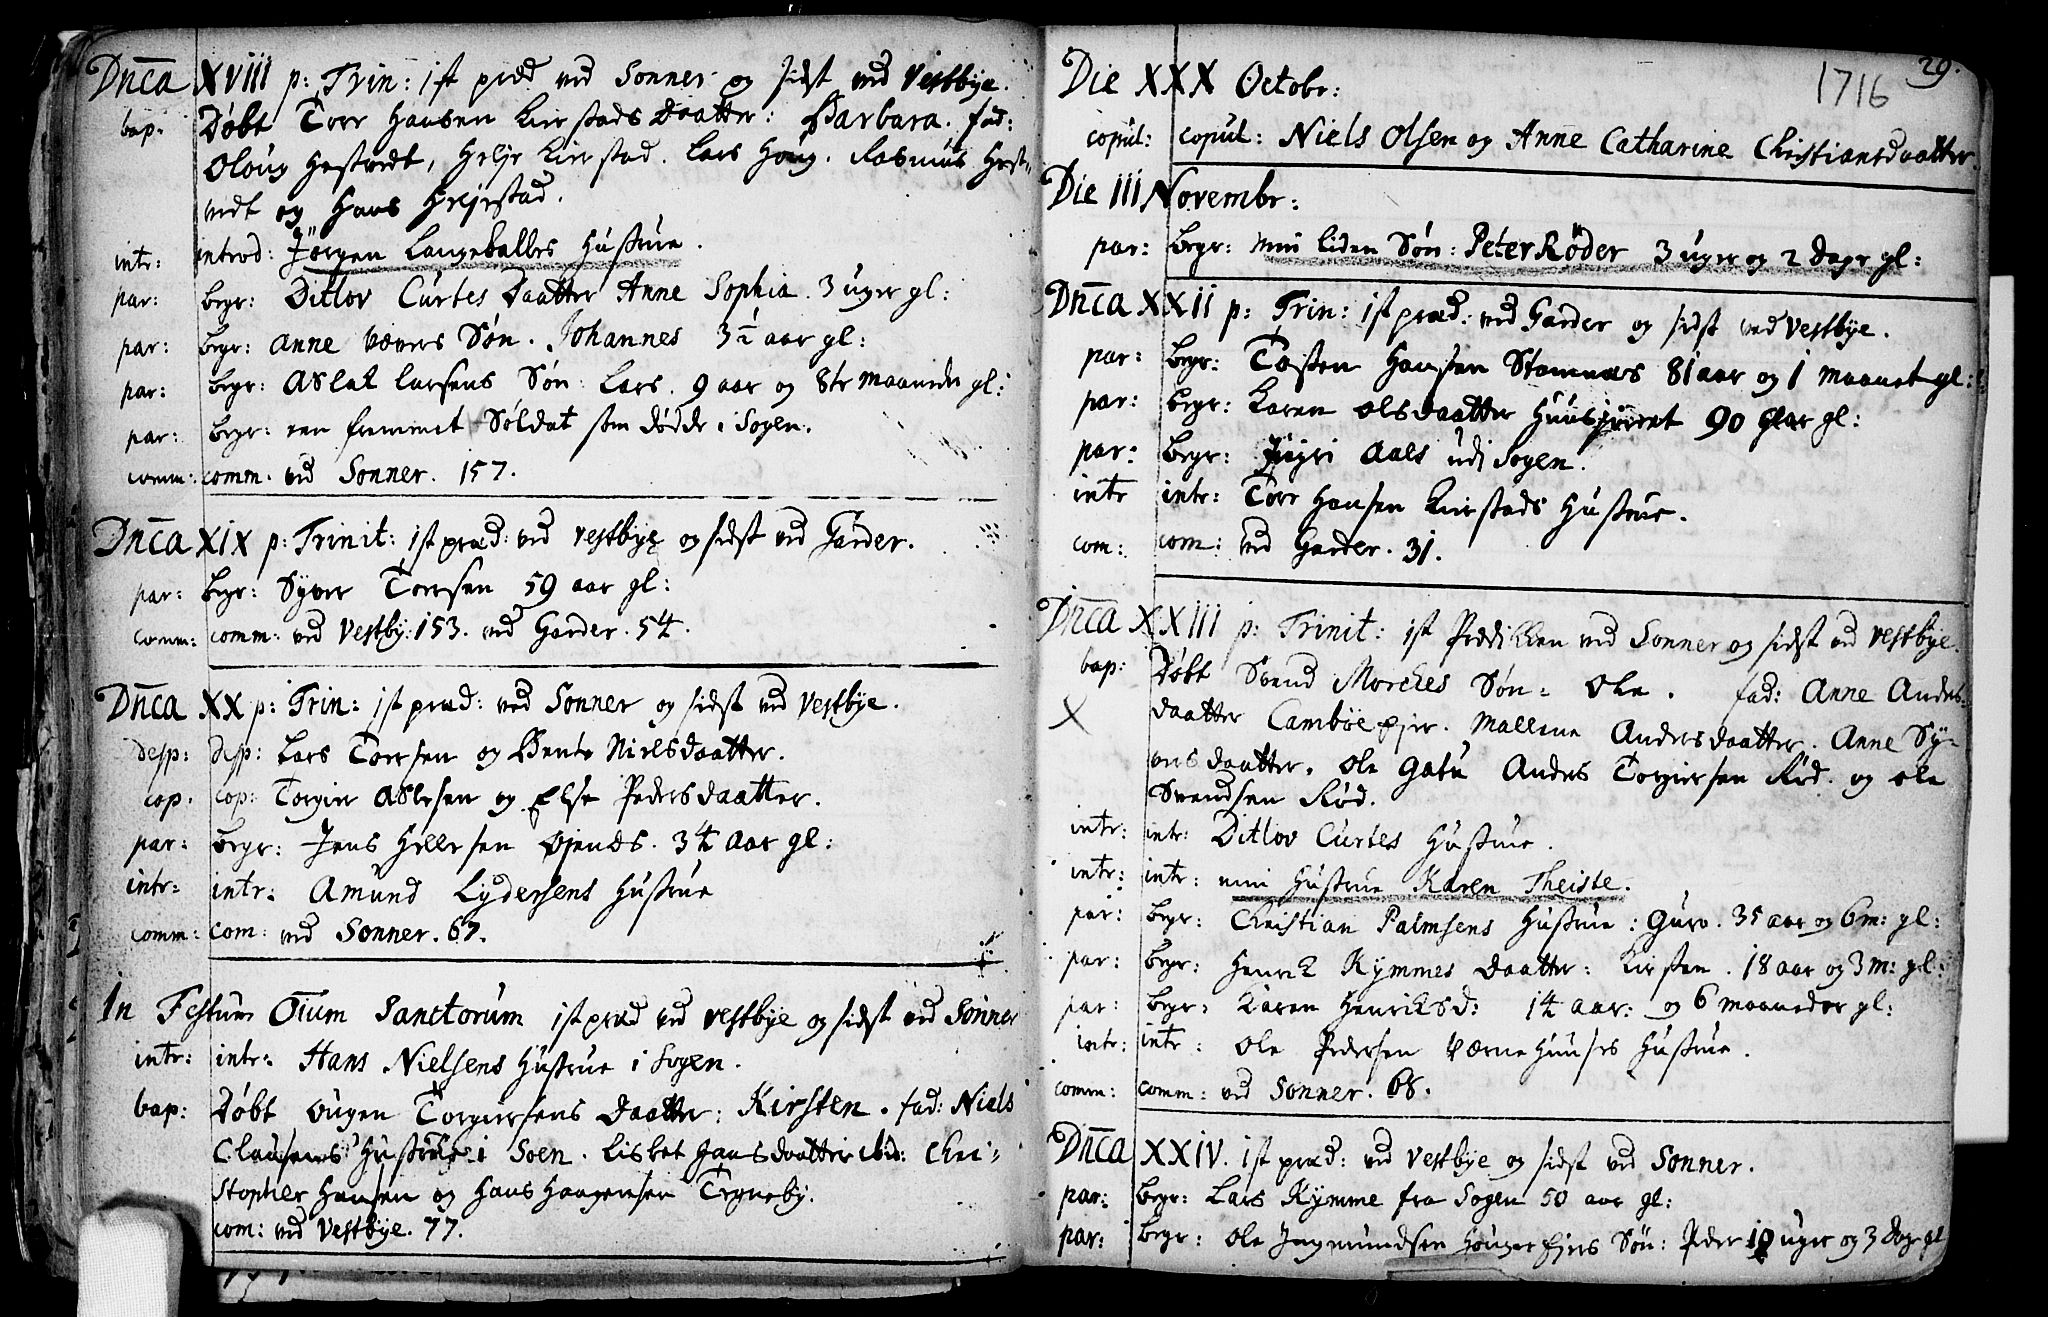 Dn̄ca XVIII p: Trin: ist præd ved Sonner og sidst ved Vestbye.
bap: Døbt Torr Hansen Kierstads Daatter: Barbara. fad:
Oloug Hestvedt, Helje Kierstad. Lars Houg. Rasmus Hest-
vedt og Hans Heljestad.
intr: introd: Jörgen Langeballes Hustrue.
par: begr: Ditlov Curtes Daatter Anne Sophia. 3 uger gl:
par: begr: Anne Vævers Søn. Johannes 3½ aar gl:
par: begr: Aslak Larsens Søn: Lars. 9 aar og 8te maaneder gl:
par: begr: een fremmet Soldat som døde i Sogen.
comm: comm: ved Sonner. 157.
Dn̄ca XIX p: Trinit: ist præd: ved Vestbye og sidst ved Garder.
par: begr: Syver Torrsen 59 aar gl:
comm: comm: ved Vestby: 153. ved Garder. 54.
Dn̄ca XX p: Trin: ist præd: ved Sonner og sidst ved Vestbye.
desp: desp: Lars Torrsen og Bente Nielsdaatter.
cop: cop: Torgier Aslesen og Else Pedersdaatter.
par: begr: Jens Hellesen Vjends. 34 aar gl:
intr: intr: Amund Lydersens Hustrue
comm: com: ved Sonner. 67.
In Festum Oīum Sanctorum ist præd ved Vestbye og sidst ved Sonner
intr: intr: Hans Nielsens Hustrue i Sogen.
bap: Døbt Ougen Torgiersens Daatter: Kirsten. fad: Niels
Clausens Hustrue i Soen. Lisbet Hansdaatter ibid: Chri-
stopher Hansen og Hans Haagensen Tegneby.
com: ved Vestbye. 77.
29.
1716
Die XXX Octobr:
copul: copul: Niels Olsen og Anne Catharine Christiansdaatter
Die III Novembr:
par: begr: min liden Søn: Peter Röder 3 uger og 2 dage gl:
Dn̄ca XXII p: Trin: ist præd: ved Garder og sidst ved Vestbye.
par: begr: Tosten Hansen Stamnes 81 aar og 1 maanet gl:
par: begr: Karen Olsdaatter Huus 90 aar gl:
par: begr: Sigri Aaes udi Sogen.
intr intr: Torr Hansen Kierstads Hustrue.
com: com: ved Garder. 31.
Dn̄ca XXIII p: Trinit: ist Prædiken ved Sonner og sidst ved Vestbye.
bap: Døbt Svend Morckes Søn: Ole. fad: Anne Anders-
X daatter Cambøe ejer. Mallene Andersdaatter. Anne Sy-
versdaatter. Ole Gatu Anders Torgiersen Rød. og Ole
Svendsen Rød.
intr: intr: Ditlov Curtes Hustrue.
intr: intr: min Hustrue Karen Theiste.
par: begr: Christian Palmsens Hustrue: Guro. 35 aar og 6 m: gl:
par: begr: Henrik Kymmes Daatter: Kirsten. 18 aar og 3 m: gl:
par: begr: Karen Henriksd: 14 aar: og 6 maaneder gl:
intr: intr: Ole Pedersen Værnehuuses Hustrue.
comm: comm: ved Sonner. 68.
Dn̄ca XXIV. ist præd: ved Vestbye og sidst ved Sonner.
par: begr: Lars Kymme fra Sogen 50 aar gl:
par: begr: Ole Ingmundsen Hougerejers Søn: Peder uger og 3 dage gl